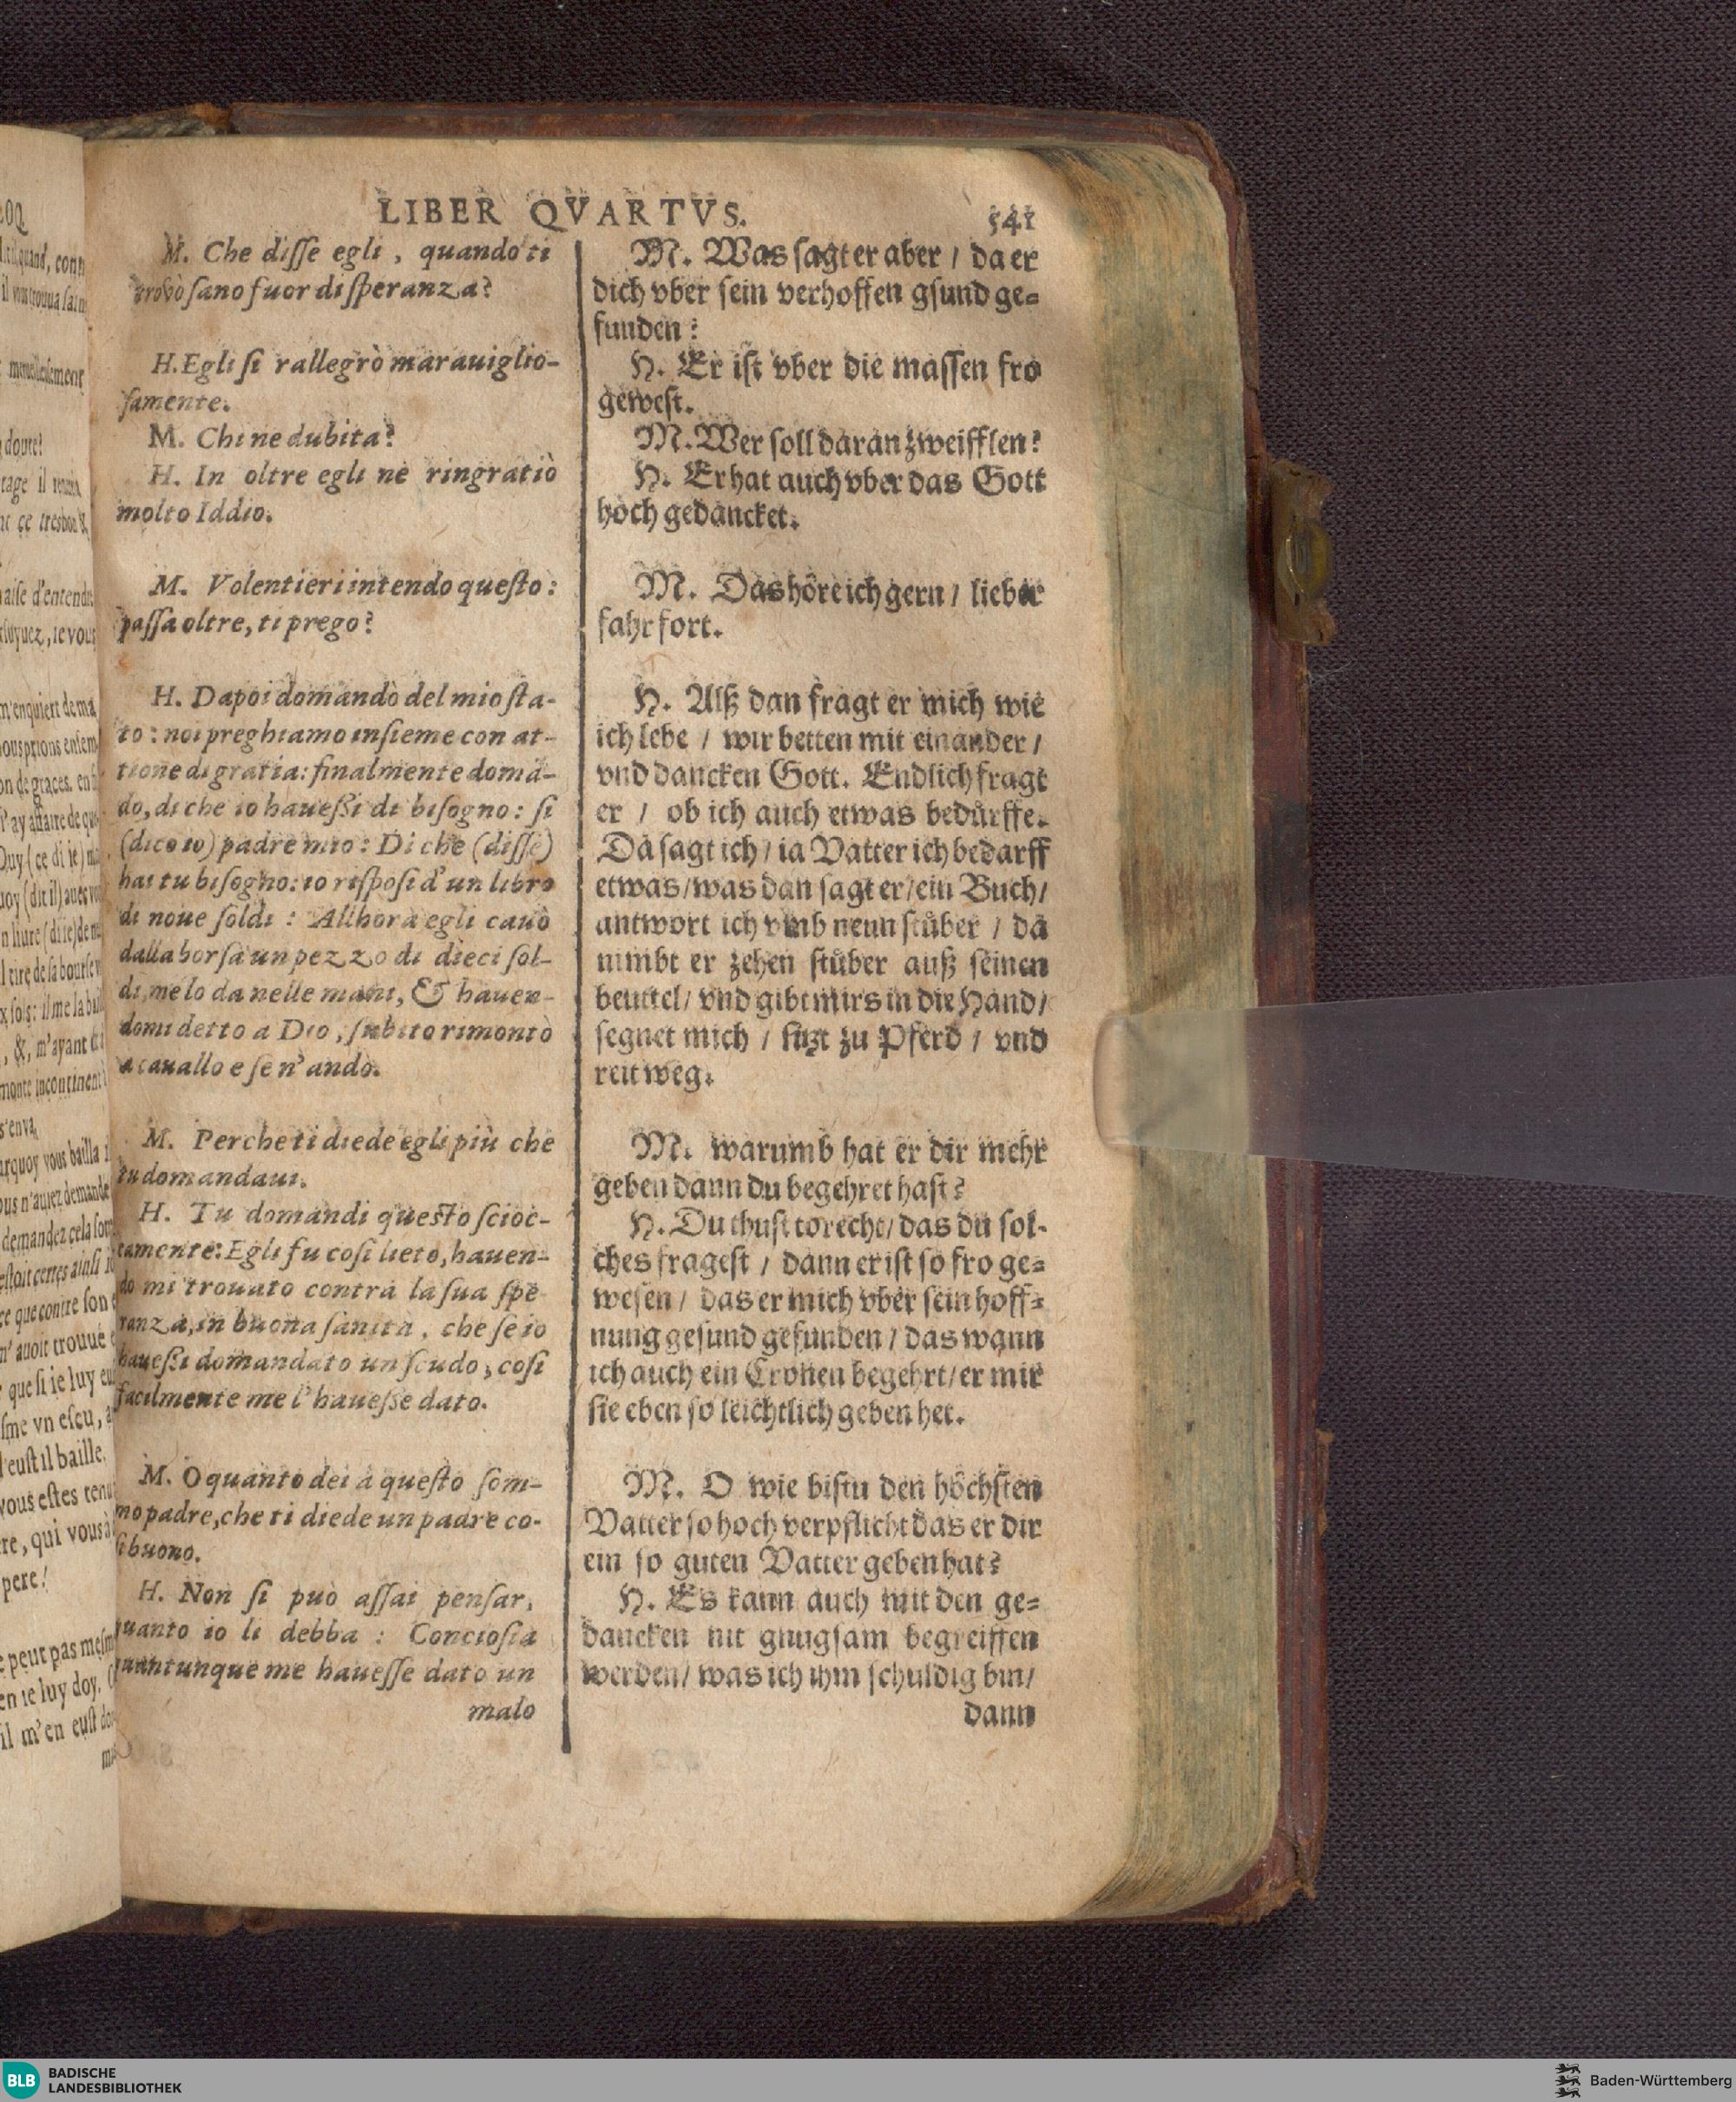 LIBER QVARTVS. 541
M. Che diſſe egli, quando ti
trovò ſano fuor di ſperanza?
H. Egli ſi rallegrò marauiglio-
ſamente.
M. Chi ne dubita?
H. In oltre egli ne ringratiò
molto Iddio.
M. Volentieri intendo queſto:
paſſa oltre, ti prego?
H. Dapoi domandò del mio ſta-
to: noi preghiamo inſieme con at-
tione di gratia: finalmente domã-
do, di che io haueßi di biſogno: ſi
(dico io) padre mio: Di che (diſſe)
hai tu biſogno: io riſpoſi d'un libro
di noue ſoldi: Allhora egli cauò
dalla borſa un pezzo di dieci ſol-
di, me lo da nelle mani, & hauen-
domi detto a Dio, ſubito rimontò
a cauallo e ſe n'andò.
M. Perche ti diede egli più che
tu domandaui.
H. Tu domandi queſto ſcioc-
camente: Egli fu coſi lieto, hauen-
do mi trouato contra la ſua ſpe
ranza, in buona ſanità, che ſe io
haueßi domandato un ſcudo, coſi
facilmente me l'haueſſe dato.
M. O quanto dei a queſto ſom-
mo padre, che ti diede un padre co-
ſi buono.
H. Non ſi può aſſai penſar,
quanto io li debba: Concioſia
quantunque me haueſſe dato un
malo
M. Was ſagt er aber / da er
dich vber ſein verhoffen gſund ge=
funden?
H. Er iſt vber die maſſen fro
geweſt.
M. Wer ſoll daran zweifflen?
H. Er hat auch vber das Gott
hoch gedancket.
M. Das höre ich gern / lieber
fahr fort.
H. Alß dan fragt er mich wie
ich lebe / wir betten mit einander /
vnd dancken Gott. Endlich fragt
er / ob ich auch etwas bedürffe.
Da ſagt ich / ia Vatter ich bedarff
etwas / was dan ſagt er / ein Buch /
antwort ich vmb neun ſtüber / da
nimbt er zehen ſtüber auß ſeinen
beuttel / vnd gibt mirs in die Hand /
ſegnet mich / ſitzt zu Pferd / vnd
reit weg.
M. warumb hat er dir mehr
geben dann du begehret haſt?
H. Du thuſt torecht / das du ſol-
ches frageſt / dann er iſt ſo fro ge=
weſen / das er mich vber ſein hoff=
nung geſund gefunden / das wann
ich auch ein Cronen begehrt / er mir
ſie eben ſo leichtlich geben het.
M. O wie biſtu den höchſten
Vatter ſo hoch verpflicht das er dir
ein ſo guten Vatter geben hat?
H. Es kann auch mit den ge=
dancken nit gnugſam begreiffen
werden / was ich ihm ſchuldig bin /
dann
BLB BADISCHE
LANDESBIBLIOTHEK
Baden-Württemberg